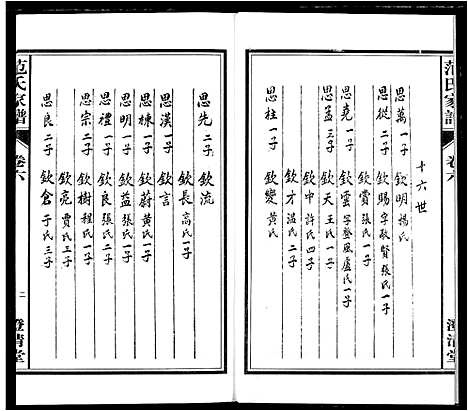 范氏家譜
卷六
澄清堂
十六世
思萬一子 欽明楊氏
思從二子 欽賜字敬賢張氏一子
欽賞張氏一子
思堯一子 欽雲字登風盧氏一子
思孟三子 欽天王氏一子
欽中許氏四子
欽才溫氏二子
思柱一子 欽變黃氏
思先二子 欽流
欽長高氏一子
思漢一子 欽言
思棟一子 欽蔚黃氏一子
思明一子 欽益張氏一子
思禮一子 欽良張氏二子
思宗二子 欽樹程氏一子
欽亮賈氏三子
思良二子 欽倉于氏三子
范氏家譜
卷六
二
澄清堂